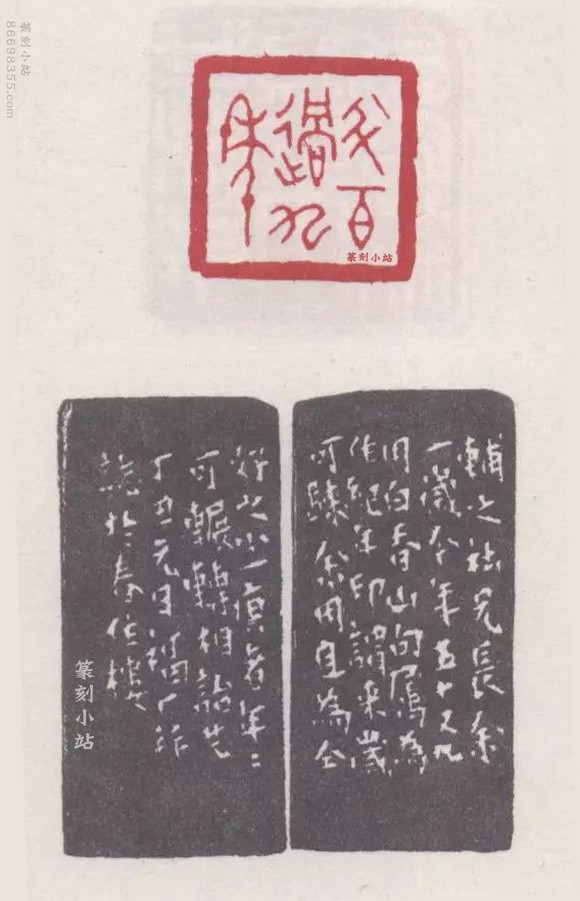 半百
過九
年
篆刻小站
輔之社兄長余
一歲今年五十又九
用白香山句屬為
作紀年印謂來歲
可余用且為
好之者年二
可輾轉相詒也
丁丑元日福厂作
於春住樓
篆刻小站
篆刻小站
86698355.com